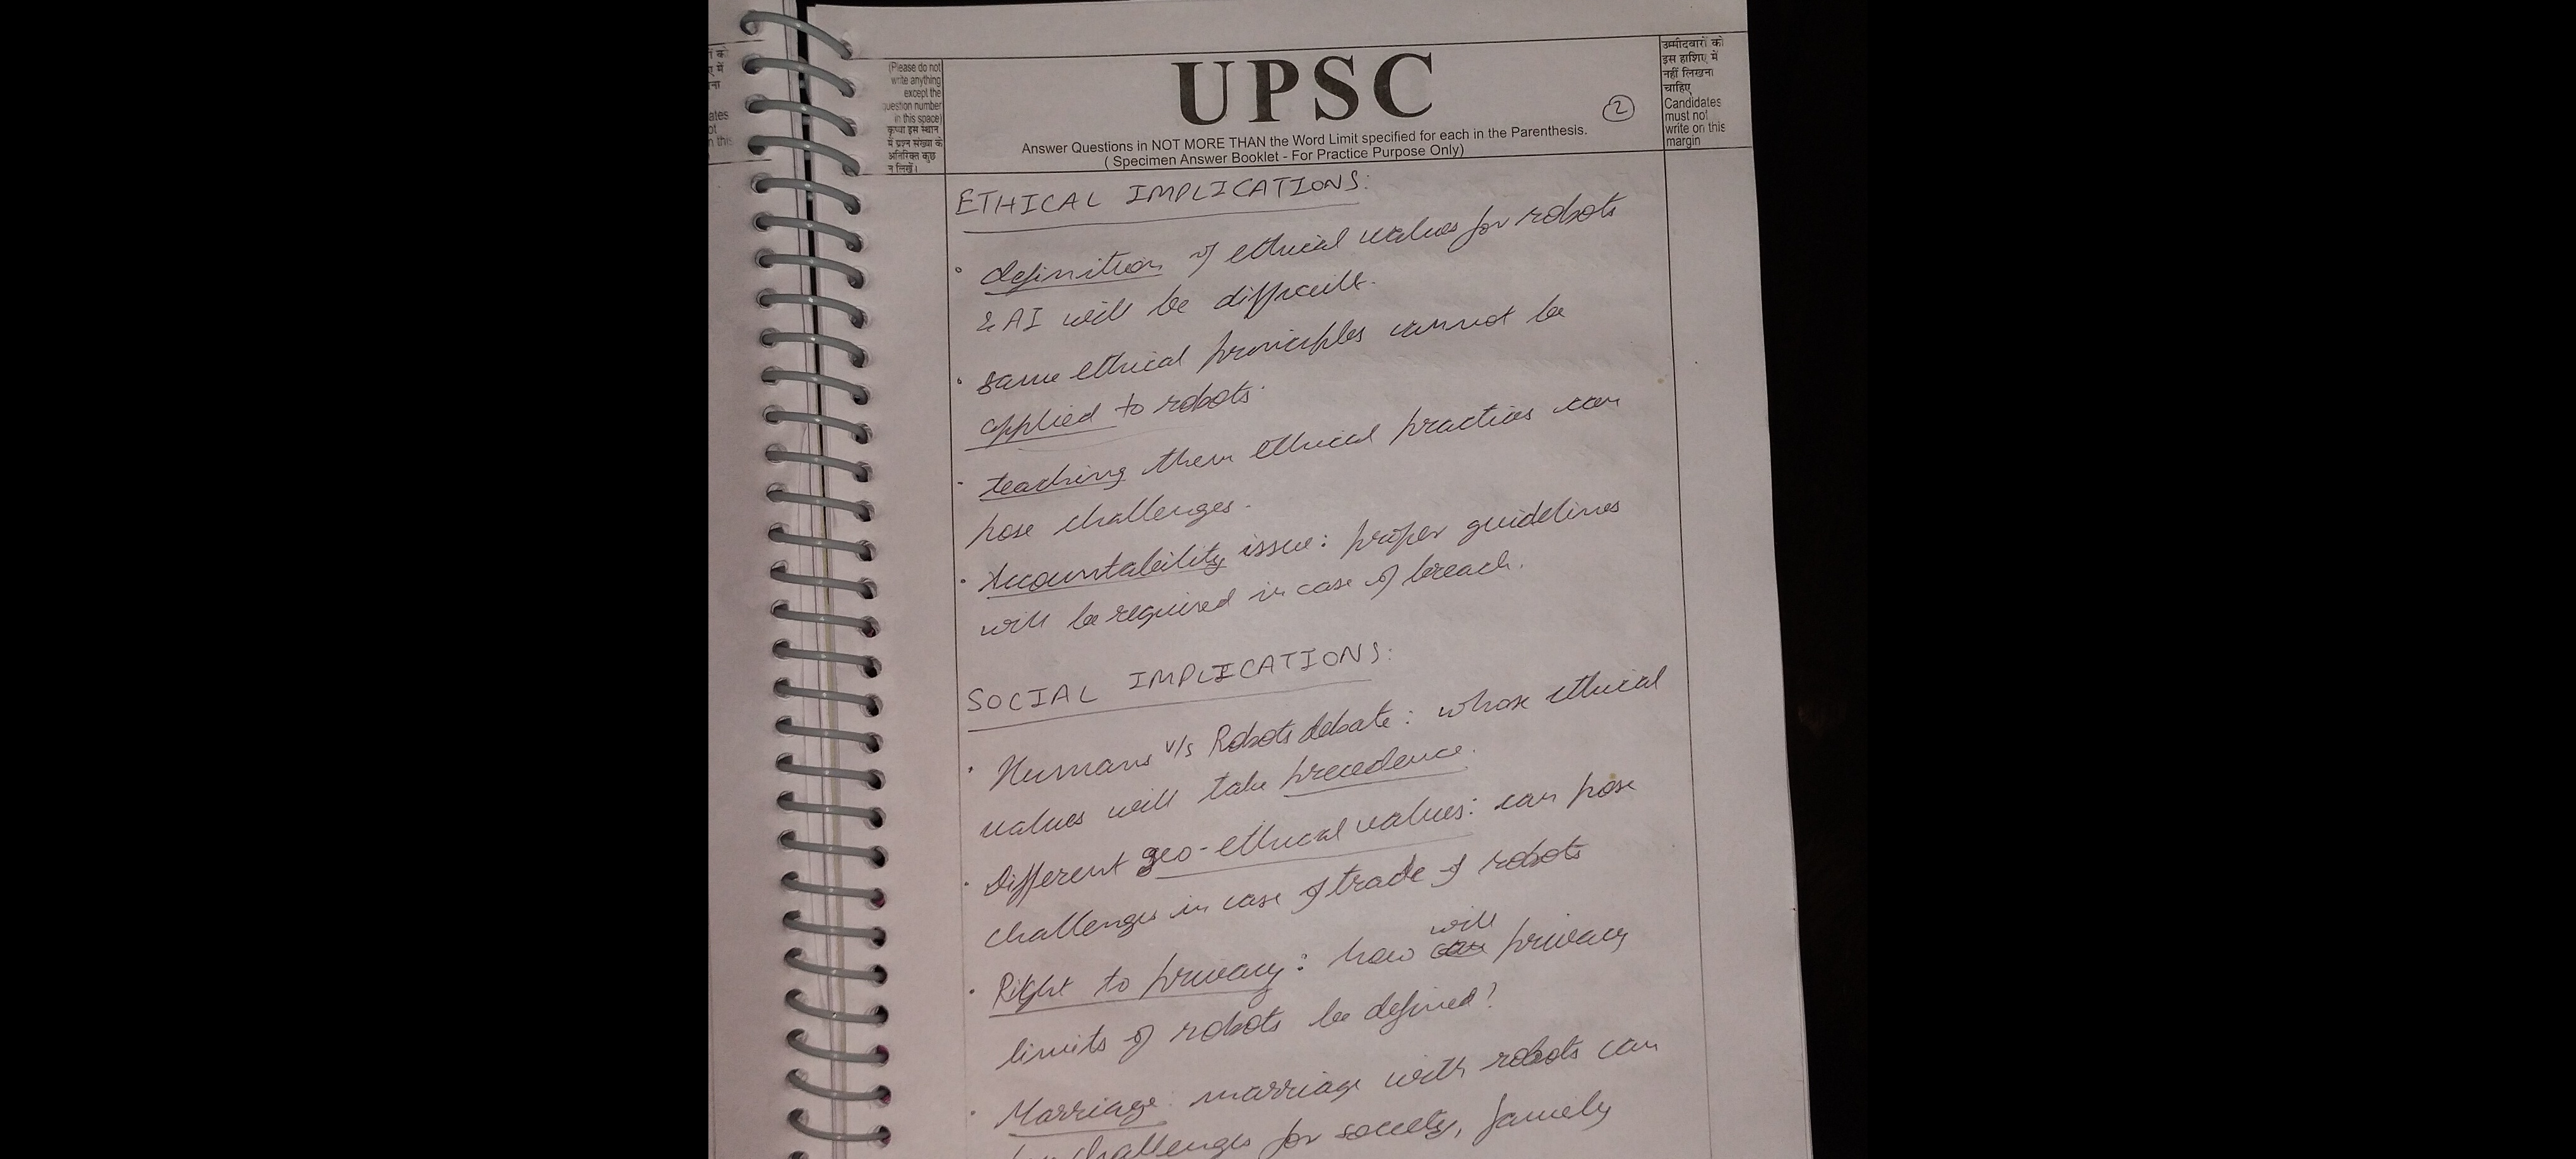 ों को
ए में
ना
ates
ot
n this
(Please do not
write anything
except the
question number
in this space)
कृप्या इस स्थान
में प्रश्न संख्या के
अतिरिक्त कुछ
न लिखें।
UPSC
2
Answer Questions in NOT MORE THAN the Word Limit specified for each in the Parenthesis.
( Specimen Answer Booklet - For Practice Purpose Only)
उम्मीदवारों को
इस हाशिए में
नहीं लिखना
चाहिए
Candidates
must not
write on this
margin
ETHICAL IMPLICATIONS:
• definition of ethical values for robots
& AI will be difficult.
• same ethical principles cannot be
applied to robots.
• teaching them ethical practices can
pose challenges.
• Accountability issue: proper guidelines
will be required in case of breach.
SOCIAL IMPLICATIONS:
• Humans v/s Robots debate: whose ethical
values will take precedence.
• Different geo-ethical values: can pose
challenges in case of trade of robots
• Right to privacy: how will privacy
limits of robots be defined?
• Marriage: marriage with robots can
challenges for society, family